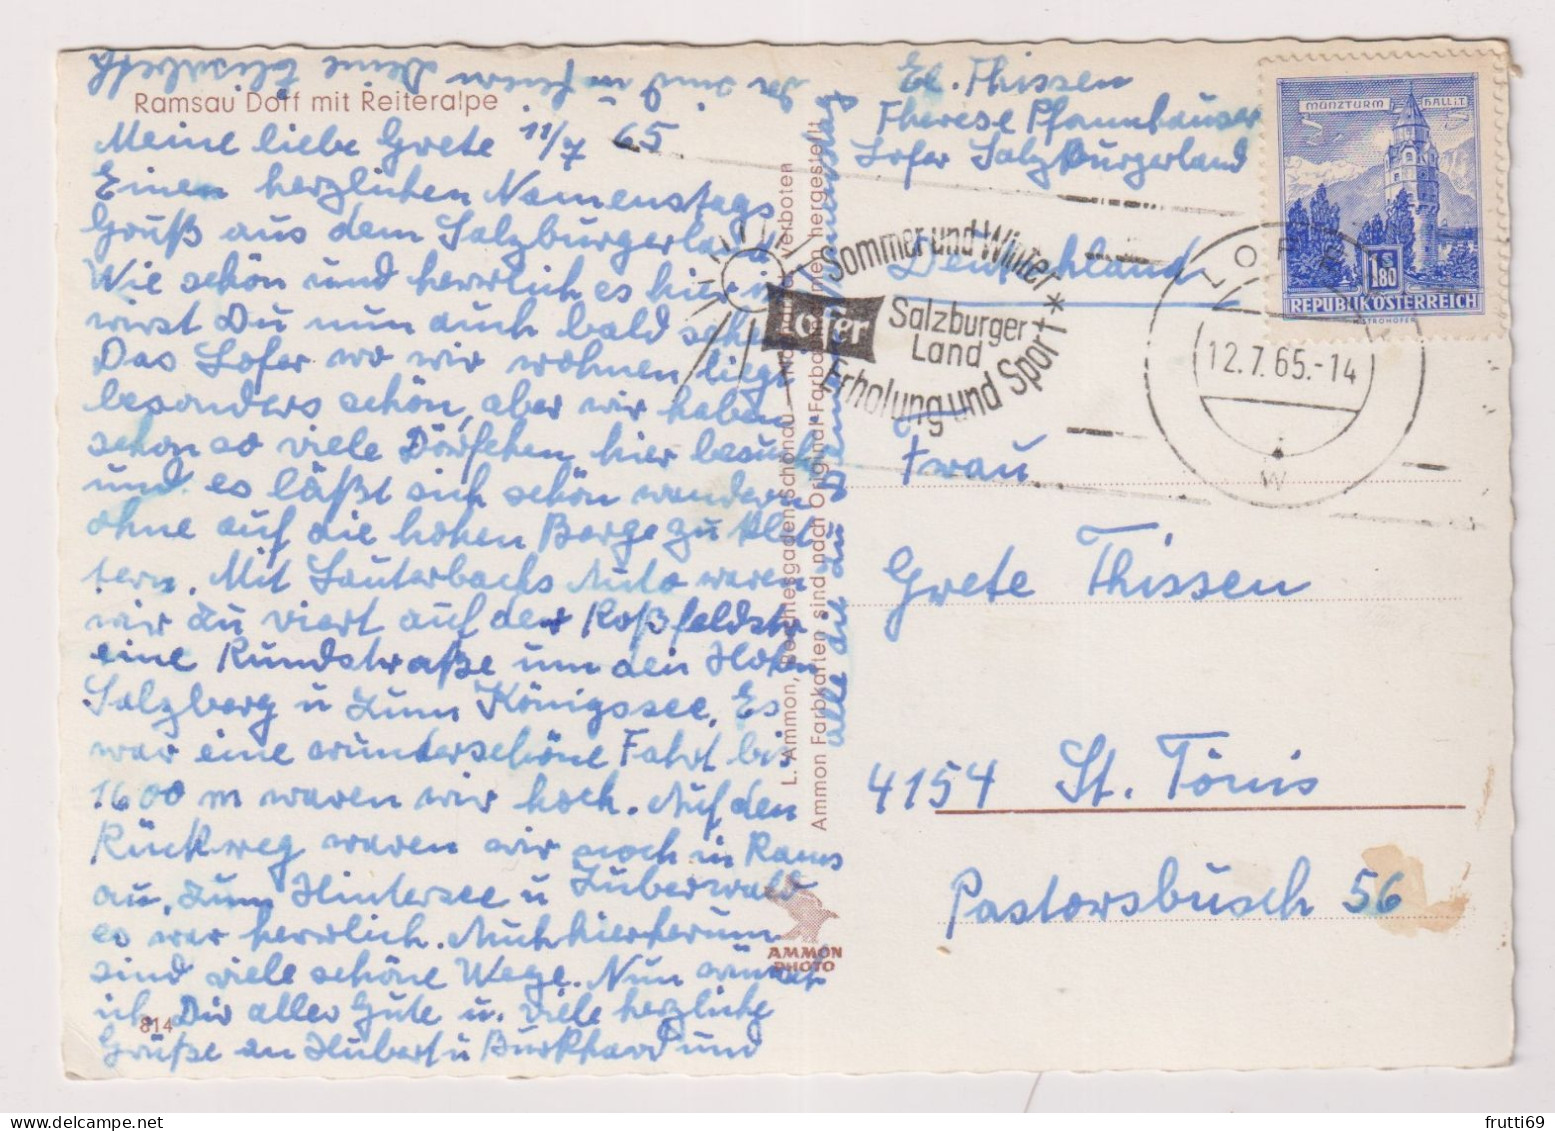 Ramsau Dorf mit Reiteralpe
Meine liebe Grete 11/7 65
Einen herzlichen Namenstags
Gruß aus dem Salzburgerland
Wie schön und herrlich es hier ist
wirst Du nun auch bald sehen
Das Lofer wo wir wohnen liegt
besonders schön, aber wir haben
schon so viele Dörfchen hier besucht
und es läßt sich schön wandern
ohne auf die hohen Berge zu klet
tern. Mit Lauterbachs Auto waren
wir zu viert auf der Roßfeldstr
eine Rundstraße um den Hohen
Salzberg u zum Königssee. Es
war eine wunderschöne Fahrt bis
1600 m waren wir hoch. Auf den
Rückweg waren wir noch in Rams
au, zum Hintersee u Zuberwald
es war herrlich. Auch hierherum
sind viele schöne Wege. Nun wünsch
ich Dir alles Gute u. viele herzliche
Grüße an Hubert u Burkhard und
alle die zu
Deine Elisabeth
814
L. Ammon, Berchtesgaden-Schönau verboten
Ammon Farbkarten sind nach Original-Farbaufnahmen hergestellt
AMMON
PHOTO
El. Thissen
Therese Pfannhauser
Lofer Salzburgerland
Deutschland
Sommer und Winter
lofer
Salzburger
Land
Erholung und Sport
LOFER
12.7.65.-14
w
MÜNZTURM HALL i.T.
1 S 80
REPUBLIK ÖSTERREICH
STROHOFER
Frau
Grete Thissen
4154 St. Tönis
Pastorsbusch 56
frutti69